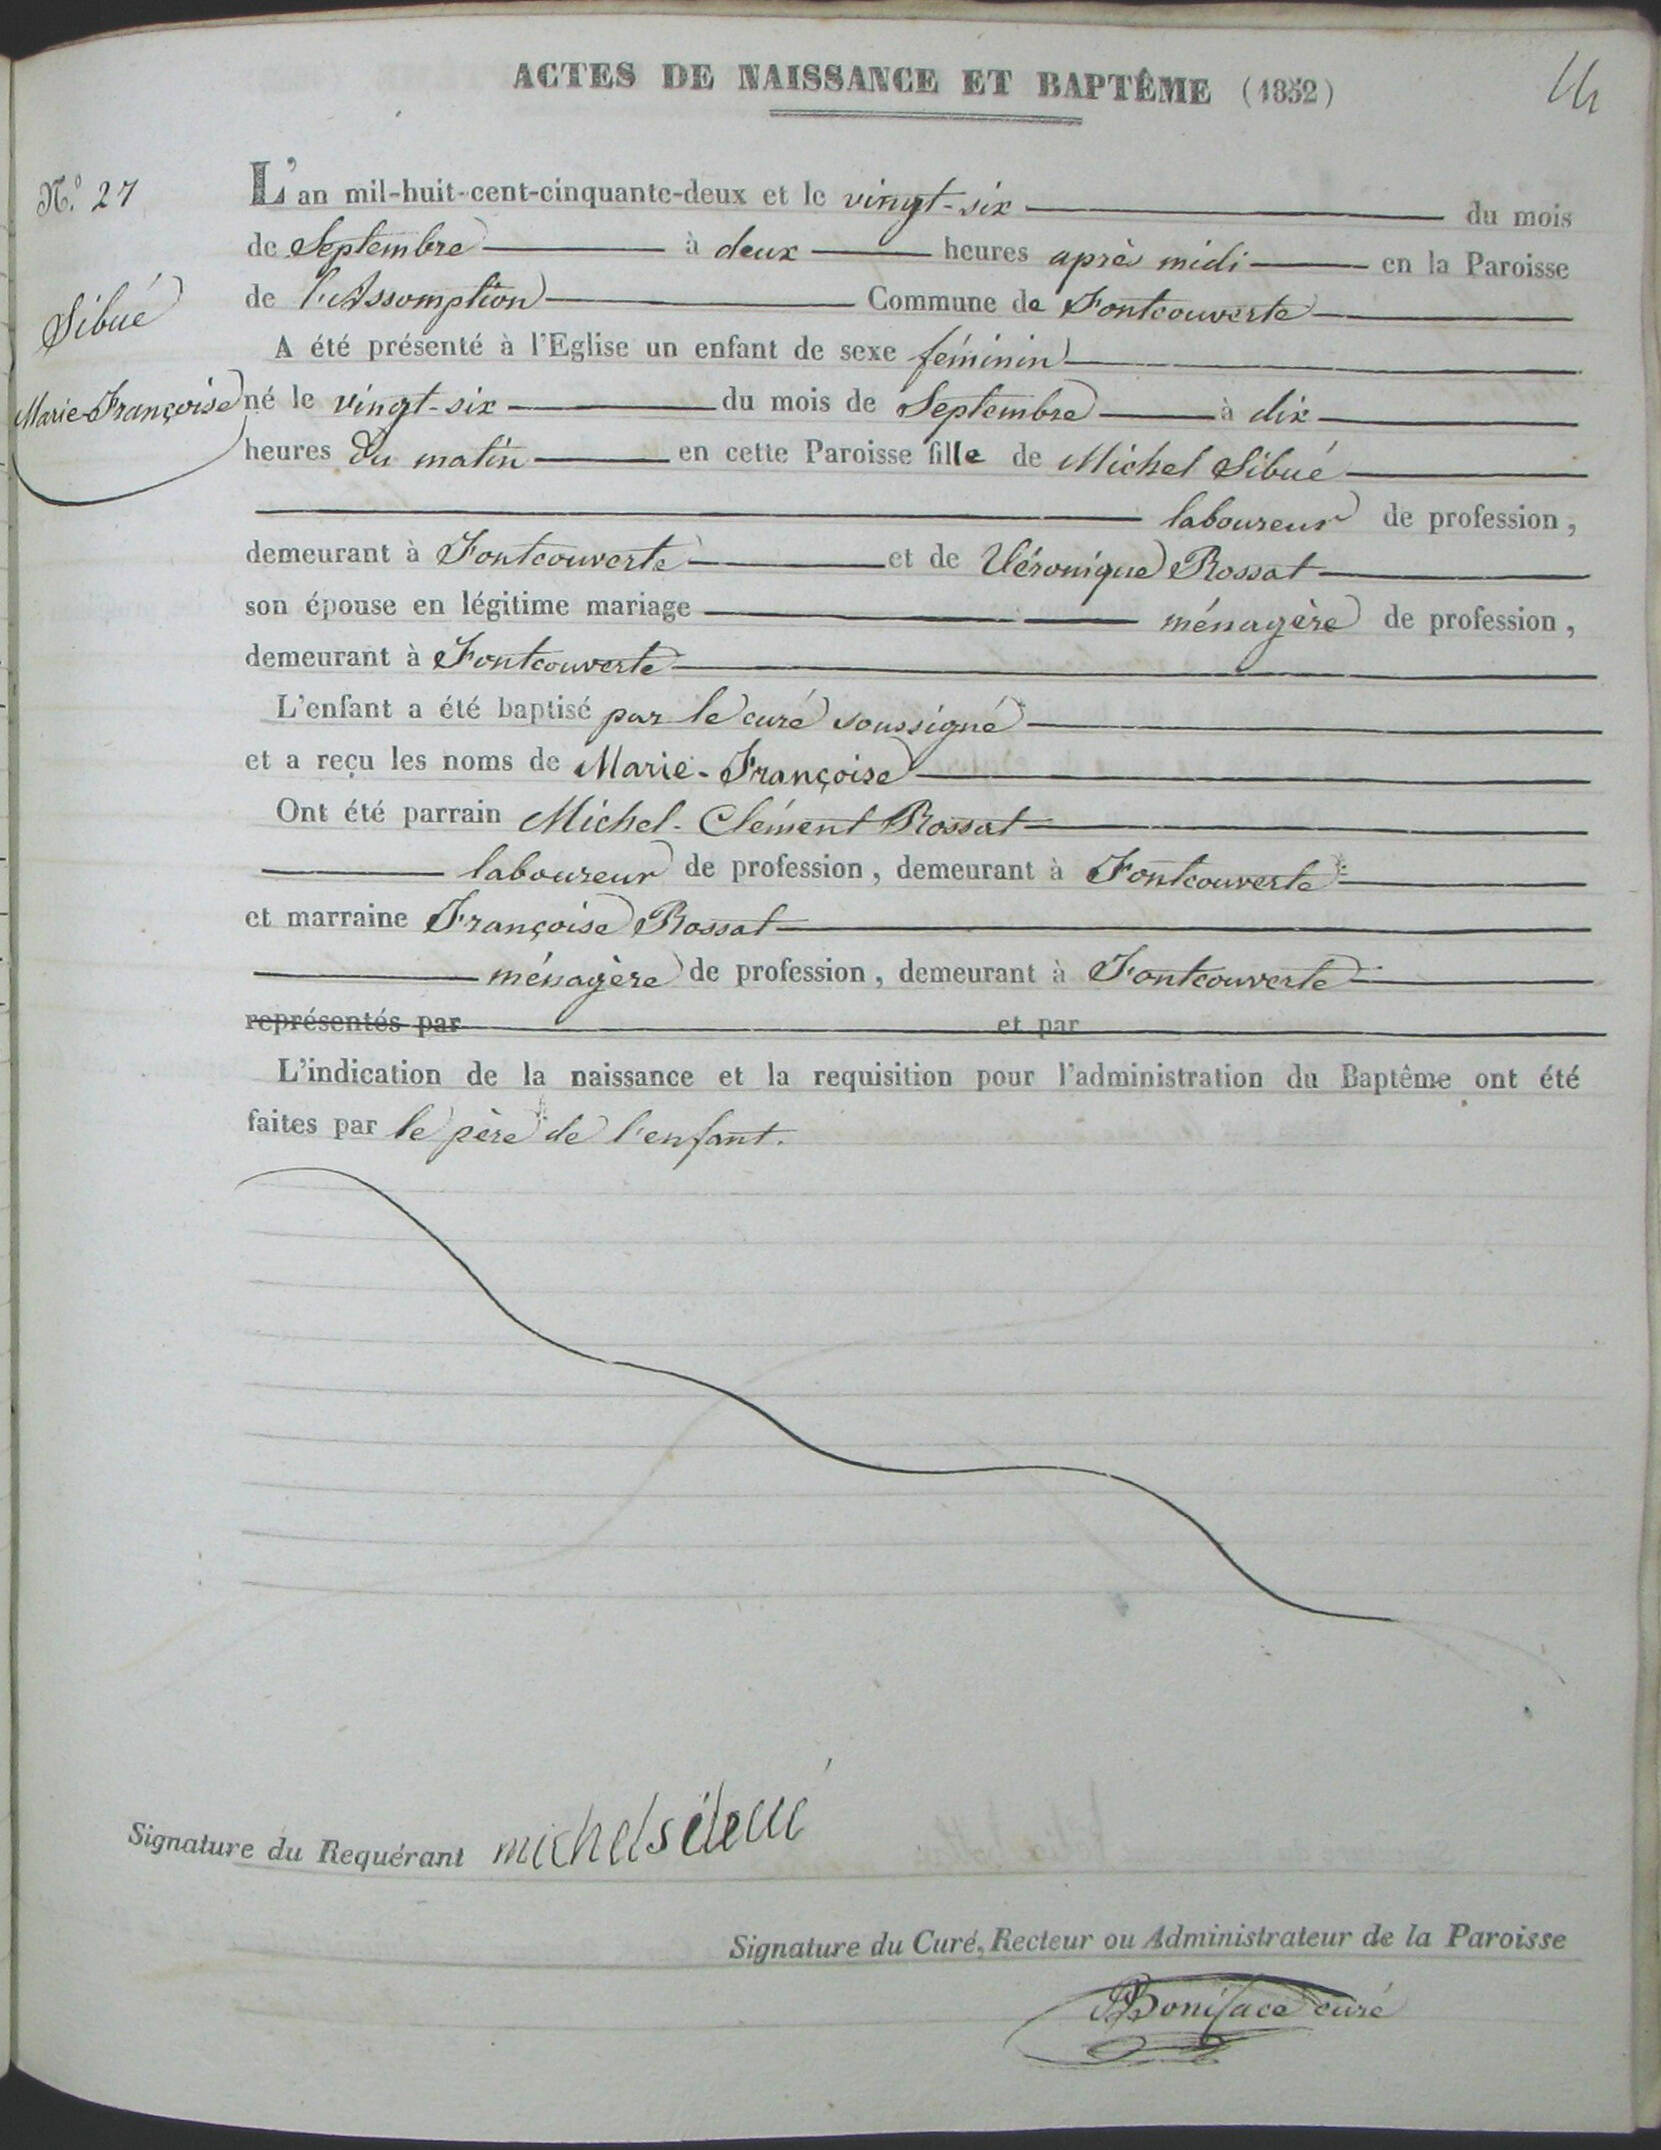 ACTES DE NAISSANCE ET BAPTÊME (1852)
N.º 27
Sibué
Marie-Françoise
L'an mil-huit-cent-cinquante-deux et le vingt-six du mois
de Septembre à deux heures après midi en la Paroisse
de l'Assomption Commune de Fontcouverte
A été présenté à l'Eglise un enfant de sexe féminin
né le vingt-six du mois de Septembre à dix
heures du matin en cette Paroisse fille de Michel Sibué
laboureur de profession,
demeurant à Fontcouverte et de Véronique Rossat
son épouse en légitime mariage ménagère de profession,
demeurant à Fontcouverte
L'enfant a été baptisé par le curé soussigné
et a reçu les noms de Marie-Françoise
Ont été parrain Michel-Clément Rossat
laboureur de profession, demeurant à Fontcouverte
et marraine Françoise Rossat
ménagère de profession, demeurant à Fontcouverte
représentés par et par
L'indication de la naissance et la requisition pour l'administration du Baptême ont été
faites par le père de l'enfant.
Signature du Requérant michel sibué
Signature du Curé, Recteur ou Administrateur de la Paroisse
Boniface curé